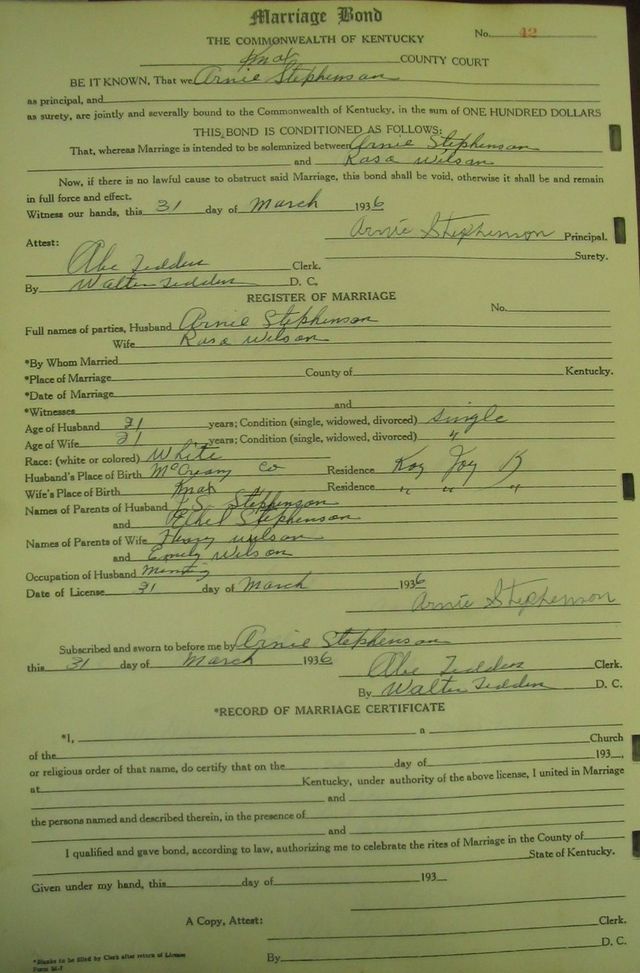 Marriage Bond
No. 42
THE COMMONWEALTH OF KENTUCKY
Knox COUNTY COURT
BE IT KNOWN, That we Arnie Stephenson
as principal, and
as surety, are jointly and severally bound to the Commonwealth of Kentucky, in the sum of ONE HUNDRED DOLLARS
THIS BOND IS CONDITIONED AS FOLLOWS:
That, whereas Marriage is intended to be solemnized between Arnie Stephenson
and Rosa Wilson
Now, if there is no lawful cause to obstruct said Marriage, this bond shall be void, otherwise it shall be and remain
in full force and effect.
Witness our hands, this 31 day of March 1936
Arnie Stephenson Principal.
Surety.
Attest:
Abe Clerk.
By Walter D. C.
REGISTER OF MARRIAGE
No.
Full names of parties, Husband Arnie Stephenson
Wife Rosa Wilson
*By Whom Married
*Place of Marriage County of Kentucky.
*Date of Marriage
*Witnesses and
Age of Husband 21 years; Condition (single, widowed, divorced) Single
Age of Wife 21 years; Condition (single, widowed, divorced) "
Race: (white or colored) White
Husband's Place of Birth McCreary Co Residence Kay Jay K
Wife's Place of Birth Knox " Residence " " "
Names of Parents of Husband Stephenson
and Ethel Stephenson
Names of Parents of Wife Henry Wilson
and Emily Wilson
Occupation of Husband Mining
Date of License 31 day of March 1936
Arnie Stephenson
Subscribed and sworn to before me by Arnie Stephenson
this 31 day of March 1936
Abe Clerk.
By Walter D. C.
*RECORD OF MARRIAGE CERTIFICATE
*I, a Church
of the 193 ,
or religious order of that name, do certify that on the day of
at Kentucky, under authority of the above license, I united in Marriage
and
the persons named and described therein, in the presence of
and
I qualified and gave bond, according to law, authorizing me to celebrate the rites of Marriage in the County of
State of Kentucky.
Given under my hand, this day of 193
A Copy, Attest: Clerk.
By D. C.
*Blanks to be filled by Clerk after return of License